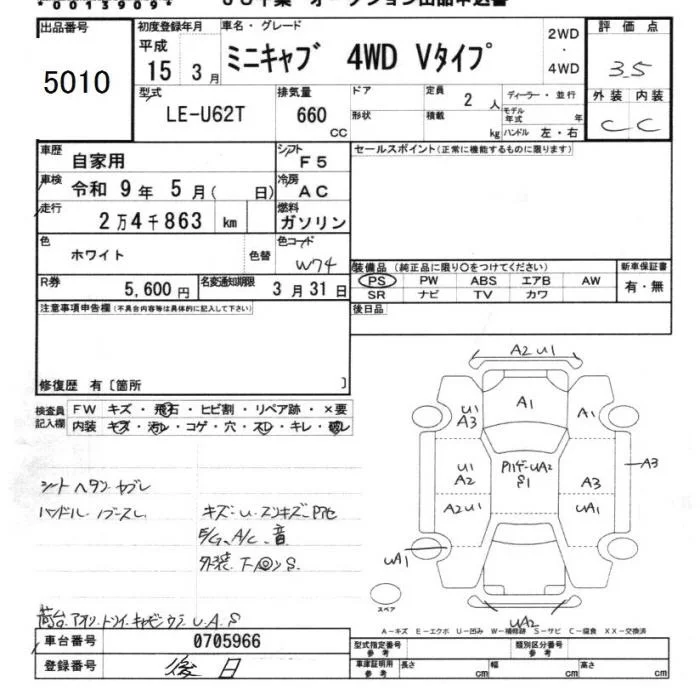 *00139009*
JU千葉 オークション出品申込書
出品番号
5010
初度登録年月
平成
15 3月
車名・グレード
ミニキャブ 4WD Vタイプ
2WD
・
4WD
評価点
3.5
外装 内装
C C
型式
LE-U62T
排気量
660
CC
ドア
形状
定員 2 人
積載 kg
ディーラー・並行
モデル年式 年
ハンドル 左・右
車歴
自家用
シフト
F5
車検
令和 9年 5月( 日)
冷房
AC
走行
2万4千863 km
燃料
ガソリン
色
ホワイト
色替
色コード
W74
R券
5,600円
名変通知期限
3月31日
セールスポイント(正常に機能するものに限ります)
装備品 (純正品に限り○をつけてください)
PS PW ABS エアB AW
SR ナビ TV カワ
新車保証書
有・無
後日品
注意事項申告欄(不具合内容等は具体的に記入して下さい)
修復歴 有〔箇所 〕
検査員
記入欄
FW キズ・飛石・ヒビ割・リペア跡・×要
内装 キズ・汚レ・コゲ・穴・スレ・キレ・破レ
シート ヘタリ ヤブレ
ハンドル ノブ スレ
E/G、A/C、音
A2 U1
A1
U1
A3
A1
U1
A2
UA2
S1
A3
A3
A2U1
UA1
UA1
スペア
UA2
A−キズ E−エクボ U−凹み W−補修跡 S−サビ C−腐食 XX−交換済
車台番号
0705966
登録番号
後日
型式指定番号
参考
類別区分番号
参考
車庫証明用
参考
長さ cm
幅 cm
高さ cm